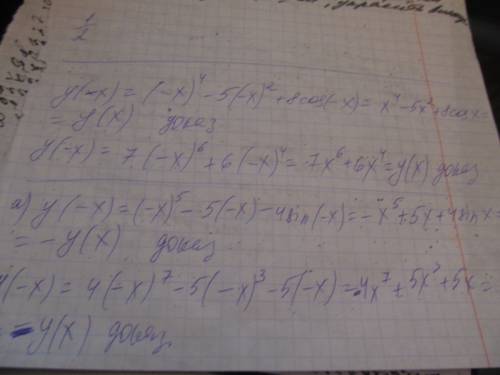 1
2
y(-x) = (-x)⁴ - 5(-x)² + 8cos(-x) = x⁴ - 5x² + 8cosx =
= y(x) доказ
y(-x) = 7·(-x)⁶ + 6·(-x)⁴ = 7x⁶ + 6x⁴ = y(x) доказ
а) y(-x) = (-x)⁵ - 5(-x) - 4sin(-x) = -x⁵ + 5x + 4sinx =
= -y(x) доказ
y(-x) = 4(-x)⁷ - 5(-x)³ - 5(-x) = -4x⁷ + 5x³ + 5x =
= -y(x) доказ.